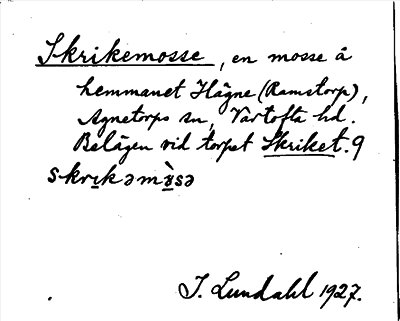 Skrikemosse, en mosse å
hemmanet Hägne (Ramstorp),
Agnetorps sn, Vartofta hd.
Belägen vid torpet Skriket. 9
skrɪkəmɔ̀sə
J. Lundahl 1927.